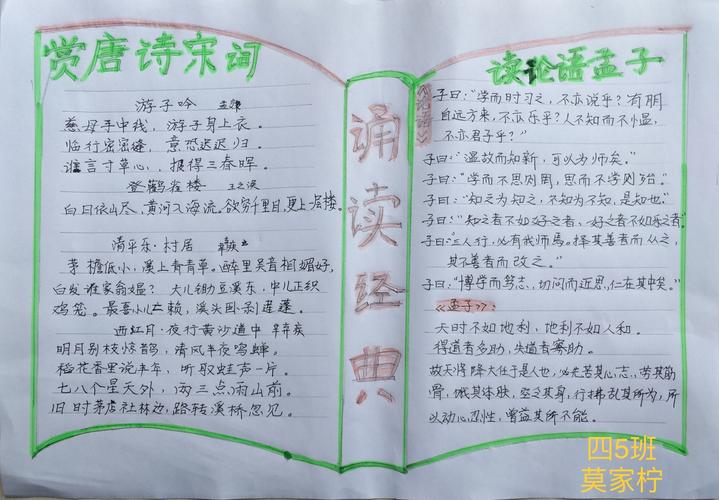 赏唐诗宋词
游子吟 孟郊
慈母手中线，游子身上衣。
临行密密缝，意恐迟迟归。
谁言寸草心，报得三春晖。
登鹳雀楼 王之涣
白日依山尽，黄河入海流。欲穷千里目，更上一层楼。
清平乐·村居 辛弃疾
茅檐低小，溪上青青草。醉里吴音相媚好，
白发谁家翁媪？大儿锄豆溪东，中儿正织
鸡笼。最喜小儿亡赖，溪头卧剥莲蓬。
西江月·夜行黄沙道中 辛弃疾
明月别枝惊鹊，清风半夜鸣蝉。
稻花香里说丰年，听取蛙声一片。
七八个星天外，两三点雨山前。
旧时茅店社林边，路转溪桥忽见。
诵读经典
读论语孟子
《论语》
子曰："学而时习之，不亦说乎？有朋
自远方来，不亦乐乎？人不知而不愠，
不亦君子乎？"
子曰："温故而知新，可以为师矣。"
子曰："学而不思则罔，思而不学则殆。"
子曰："知之为知之，不知为不知，是知也。"
子曰："知之者不如好之者、好之者不如乐之者"
子曰："三人行，必有我师焉。择其善者而从之，
其不善者而改之。"
子曰："博学而笃志，切问而近思，仁在其中矣。"
《孟子》：
天时不如地利，地利不如人和。
得道者多助，失道者寡助。
故天将降大任于是人也，必先苦其心志，劳其筋
骨，饿其体肤，空乏其身，行拂乱其所为，所
以动心忍性，曾益其所不能。
四5班
莫家柠